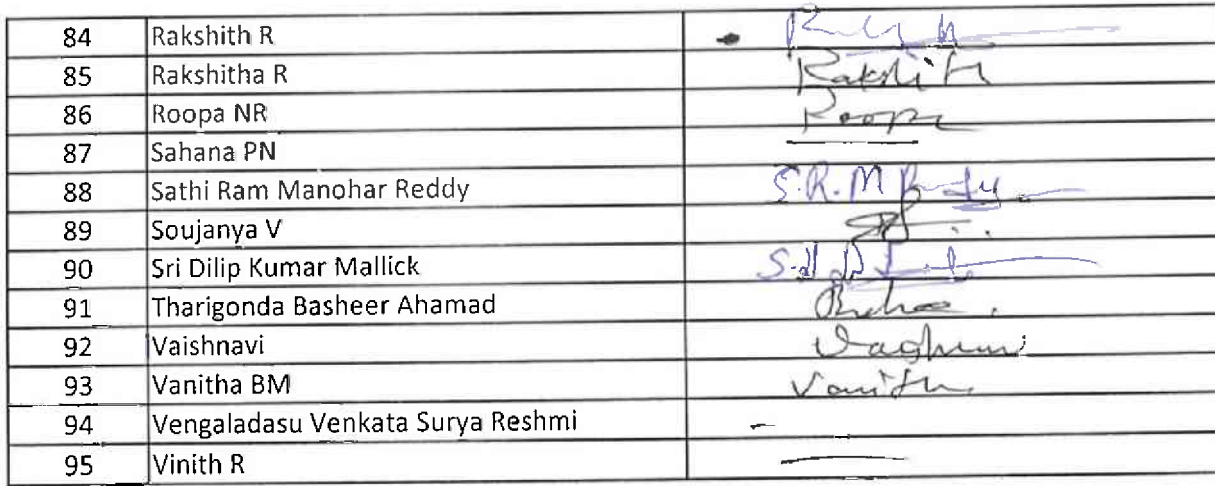 84 Rakshith R
85 Rakshitha R Rakshith
86 Roopa NR Roopa
87 Sahana PN
88 Sathi Ram Manohar Reddy S.R.M Reddy
89 Soujanya V
90 Sri Dilip Kumar Mallick
91 Tharigonda Basheer Ahamad
92 Vaishnavi
93 Vanitha BM Vanitha
94 Vengaladasu Venkata Surya Reshmi -
95 Vinith R